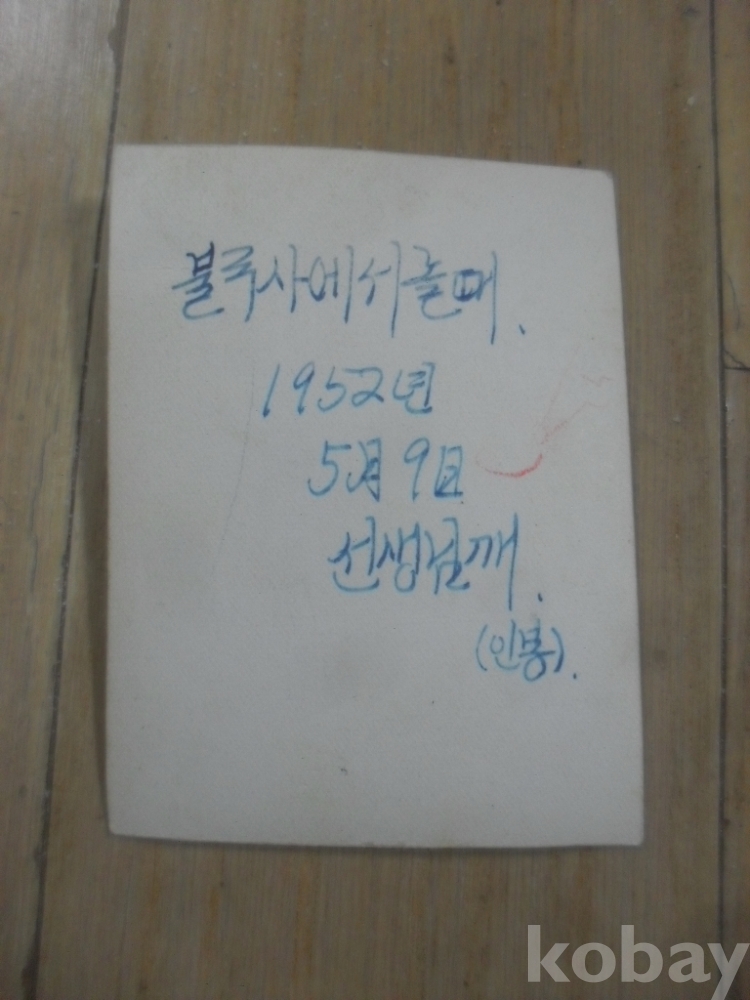 불국사에서 놀때.
1952년
5月 9日
선생님깨.
(인봉).
kobay